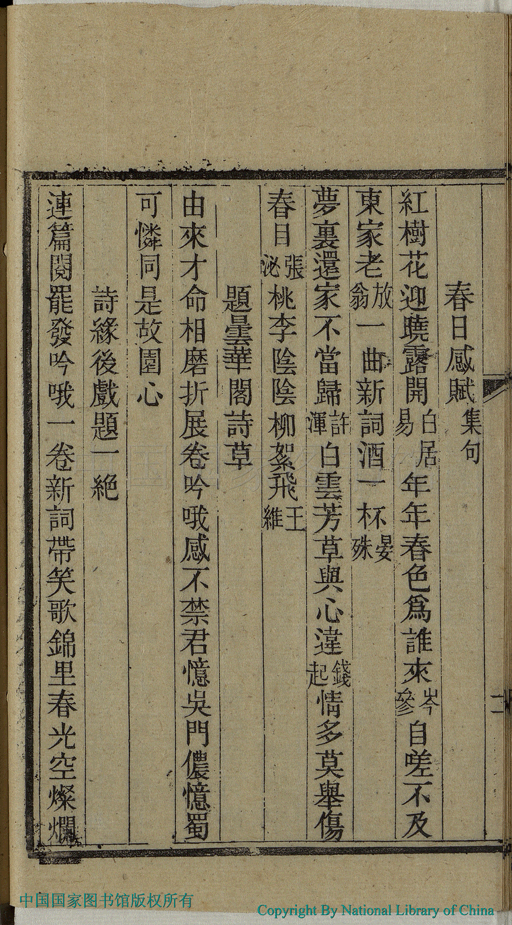 春日感賦集句
紅樹花迎曉露開白居易年年春色爲誰來岑參自嗟不及
東家老放翁一曲新詞酒一杯晏殊
夢裏還家不當歸許渾白雲芳草與心違錢起情多莫舉傷
春目張泌桃李陰陰柳絮飛王維
題曇華閣詩草
由來才命相磨折展卷吟哦感不禁君憶吳門儂憶蜀
可憐同是故園心
詩緣後戲題一絕
連篇閱罷發吟哦一卷新詞帶笑歌錦里春光空燦爛
中国国家图书馆版权所有
Copyright By National Library of China